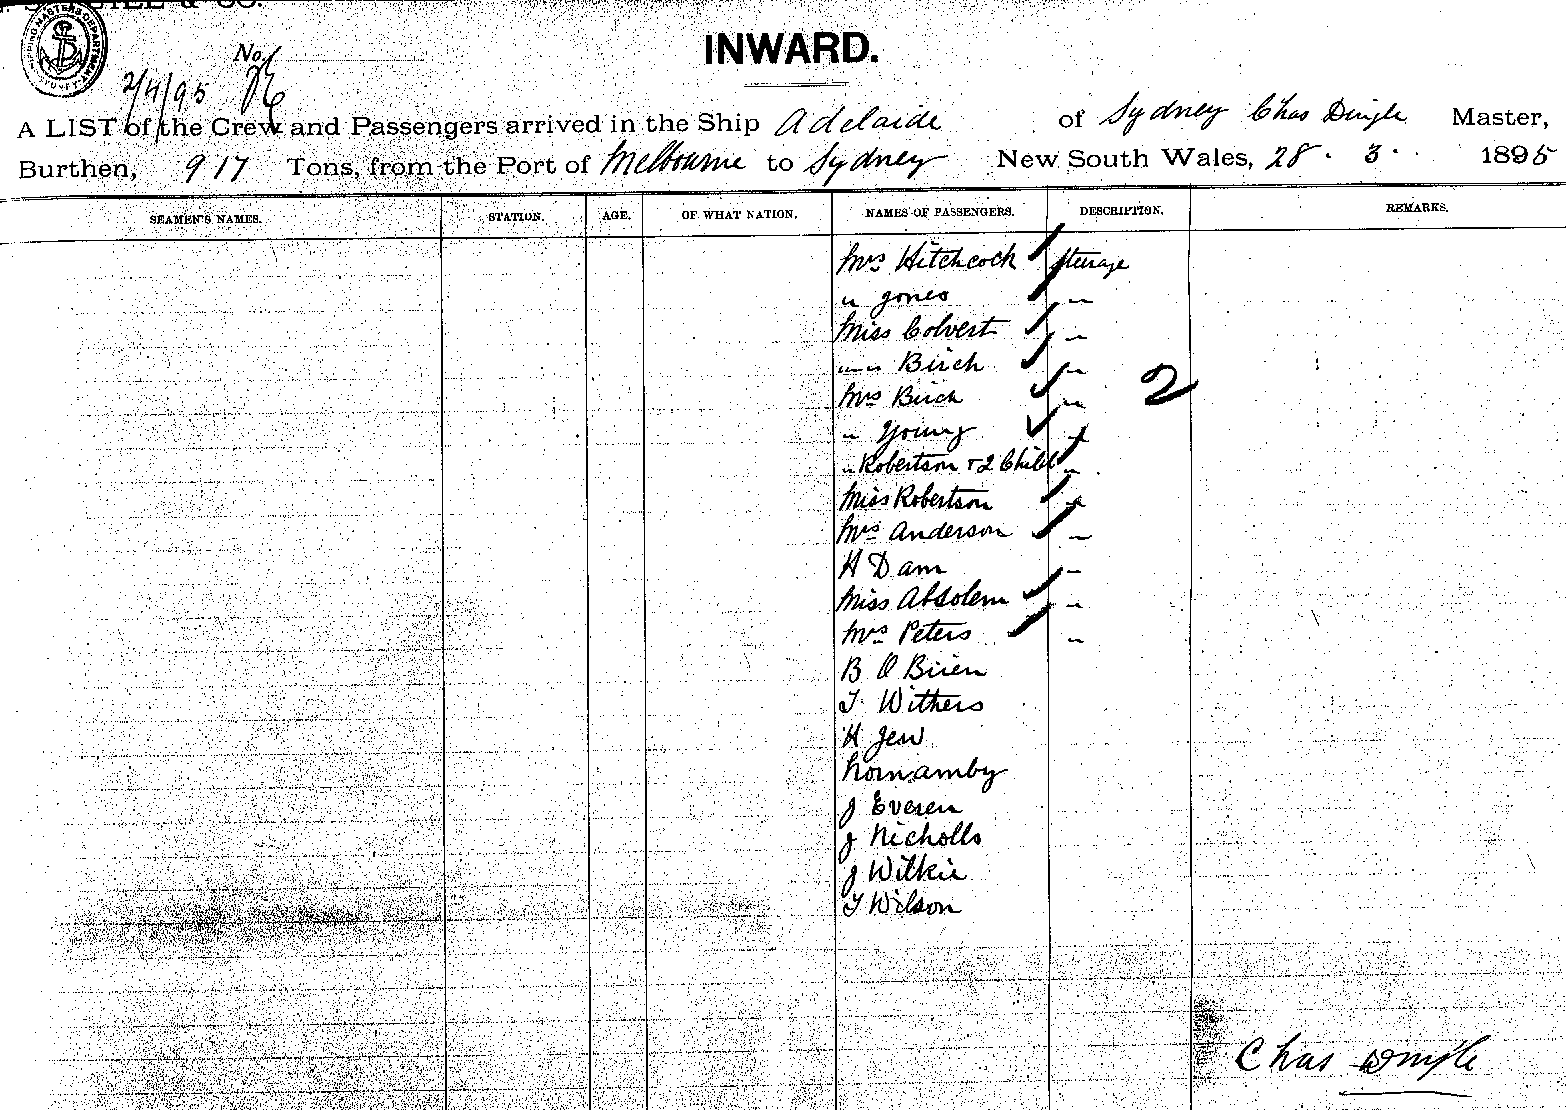 & CO.
SHIPPING MASTER'S DEPARTMENT SYDNEY
INWARD.
No.
2/4/95
A LIST of the Crew and Passengers arrived in the Ship Adelaide of Sydney Chas Dingle Master,
Burthen, 917 Tons, from the Port of Melbourne to Sydney New South Wales, 28. 3. 1895
SEAMEN'S NAMES. STATION. AGE. OF WHAT NATION. NAMES OF PASSENGERS. DESCRIPTION. REMARKS.
Mrs Hitchcock Steerage
" Jones "
Miss Colvert "
" " Birch "
Mrs Birch " 2
" Young "
" Robertson + 2 Child "
Miss Robertson "
Mrs Anderson "
H Dam "
Miss Absolem "
Mrs Peters "
B O Brien
T. Withers
H Jew
Nornamby
J Everen
J Nicholls
J Wilkie
T Wilson
Chas Dingle